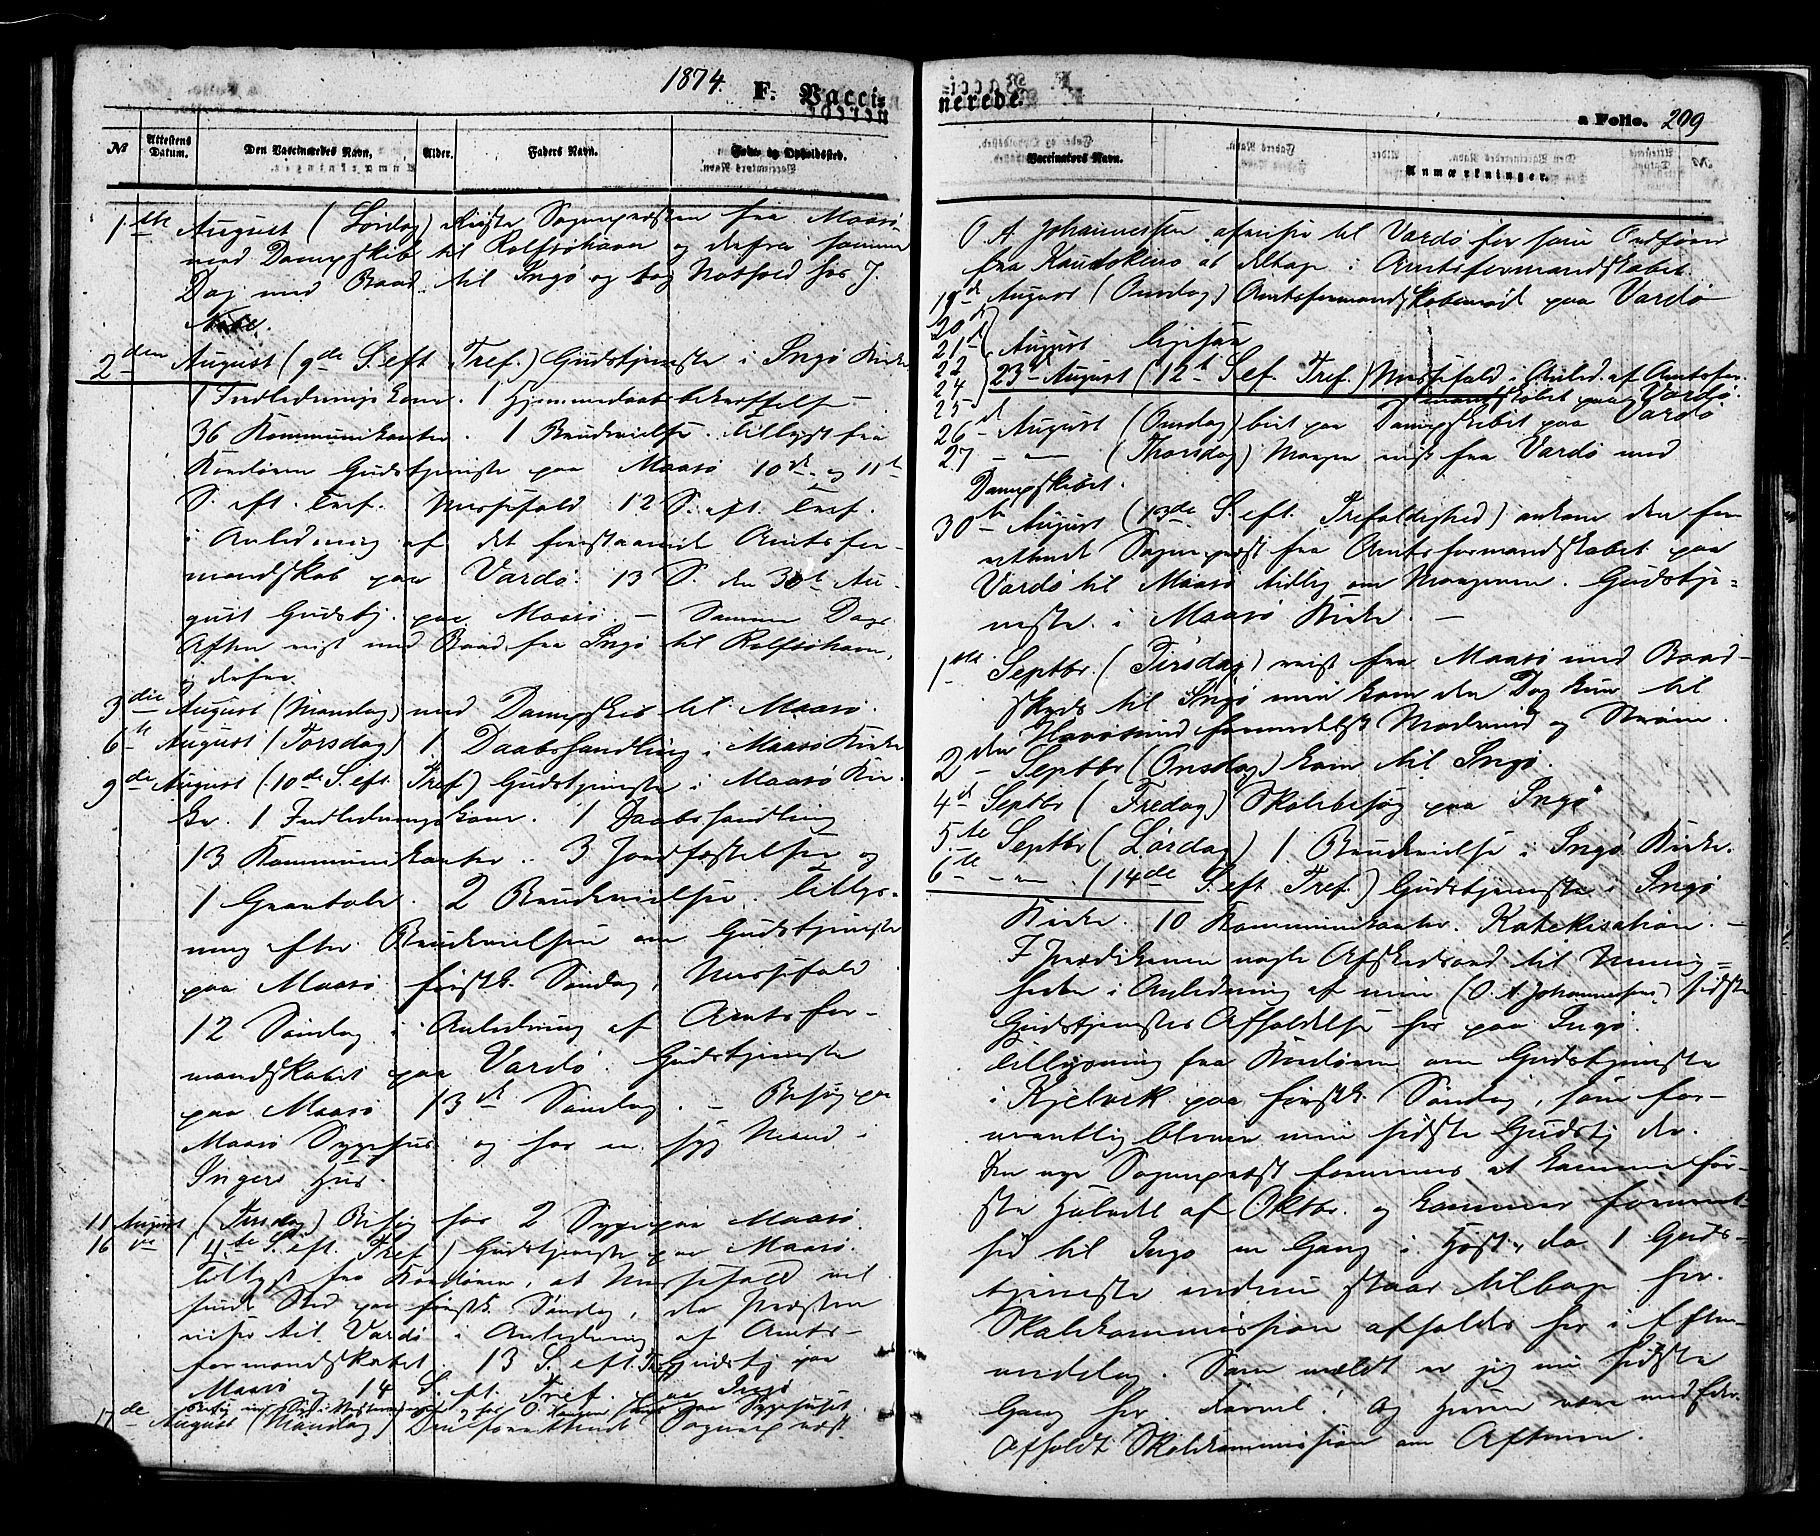 1874. F. Vacci-
№ Attestens Datum. Den Vaccineredes Navn. Alder. Faders Navn. Føde- og Opholdssted.
1ste August (Lørdag) reiste Sognepræsten fra Maasø
med Dampskib til Rolfsøhavn og derfra samme
Dag med Baad til Ingø og tog Nathold hos J.
2den August (9de S. eft. Tref.) Gudstjeneste i Ingø Kirke
1 Indledningskone. 1 Hjemmedaabsbekræftelse
36 Kommunikanter. 1 Brudevielse. Tillyst fra
Kordøren Gudstjeneste paa Maasø 10de og 11te
S. eft. Tref. Messefald 12 S. eft. Tref.
i Anledning af det forestaaende Amtsfor-
mandskab paa Vardø. 13 S. den 30te Au-
gust Gudstj. paa Maasø. – Samme Dags
Aften reist med Baad fra Ingø til Rolfsøhavn,
og derfra
3die August (Mandag) med Dampskib til Maasø.
6te August (Torsdag) 1 Daabshandling i Maasø Kirke
9de August (10de S. eft. Tref.) Gudstjeneste i Maasø Kir-
ke. 1 Indledningskone. 1 Daabshandling
13 Kommunikanter. 3 Jordfæstelser og
1 Gravtale. 2 Brudevielser. Tillys-
ning efter Brudevielsen om Gudstjeneste
paa Maasø førstk. Søndag, Messefald
12 Søndag i Anledning af Amtsfor-
mandskabet paa Vardø. Gudstjeneste
paa Maasø 13de Søndag. – Besøg paa
Maasø Sygehus og hos en syg Mand i
Ingers Hus.
11 August (Tirsdag) Besøg hos 2 Syge paa Maasø.
16 (S. eft. Tref.) Gudstjeneste paa Maasø.
Tillyst fra Kordøren, at Messefald vil
finde Sted paa førstk. Søndag, da Præsten
reiser til Vardø i Anledning af Amts-
formandskabet. 13 S. eft. Tref. Gudstj. paa
Maasø og 14 S. eft. Tref. paa Ingø
17de August (Mandag) Den forrettende Sognepræst
nerede. a Folio. 209
Vaccinators Navn. Anmærkninger.
O A Johannessen afreiste til Vardø for som Ordfører
fra Kautokeino at deltage i Amtsformandskabet.
19de August (Onsdag) Amtsformandskabsmøde paa Vardø
20de
21de August ligesaa
22
24 23de August (12te S. ef. Tref.) Messefald i Anled. af Amtsfor-
25 mandskabet paa Vardø.
26de August (Onsdag) paa Dampskibet paa Vardø
27 – " – (Thorsdag) Morgen reist fra Vardø med
Dampskibet.
30te August (13de S. eft. Trefoldighed) ankom den for-
rettende Sognepræst fra Amtsformandskabet paa
Vardø til Maasø tidlig om Morgenen. Gudstje-
neste i Maasø Kirke. –
1ste Septbr. (Tirsdag) reist fra Maasø med Baad-
skyds til Ingø men kom den Dag kun til
Havøsund formedelst Modvind og Strøm.
2den Septbr (Onsdag) kom til Ingø.
4de Septbr (Fredag) Skolebesøg paa Ingø
5te Septbr (Lørdag) 1 Brudevielse i Ingø Kirke.
6te – " – (14de S. eft. Tref.) Gudstjeneste i Ingø
Kirke. 10 Kommunikanter. Katekisation. –
I Prædikenen nogle Afskedsord til Menig-
heden i Anledning af min (O. A. Johannessens) sidste
Gudstjenestes Afholdelse her paa Ingø.
Tillysning fra Kordøren om Gudstjeneste
i Kjelvik paa førstk. Søndag, som for-
mentlig bliver min sidste Gudstj. der.
Den nye Sognepræst formenes at komme før-
ste Halvdel af Oktbr. og kommer forment-
lig til Ingø en Gang i Høst, da 1 Guds-
tjeneste endnu staar tilbage her.
Skolekommission afholdes her i Efter-
middag. Som meldt er jeg nu sidste
Gang her. Farvel! Og Herren være med Eder.
Afholdt Skolekommission om Aftenen.